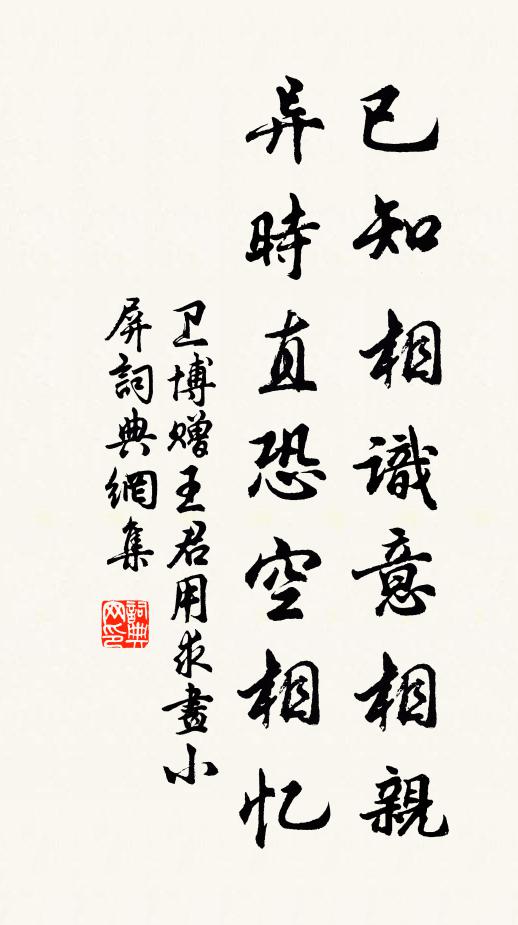 已知相識意相親
异時直恐空相忆
卫博赠王君用求畫小
屏詞典網集
詞典网印